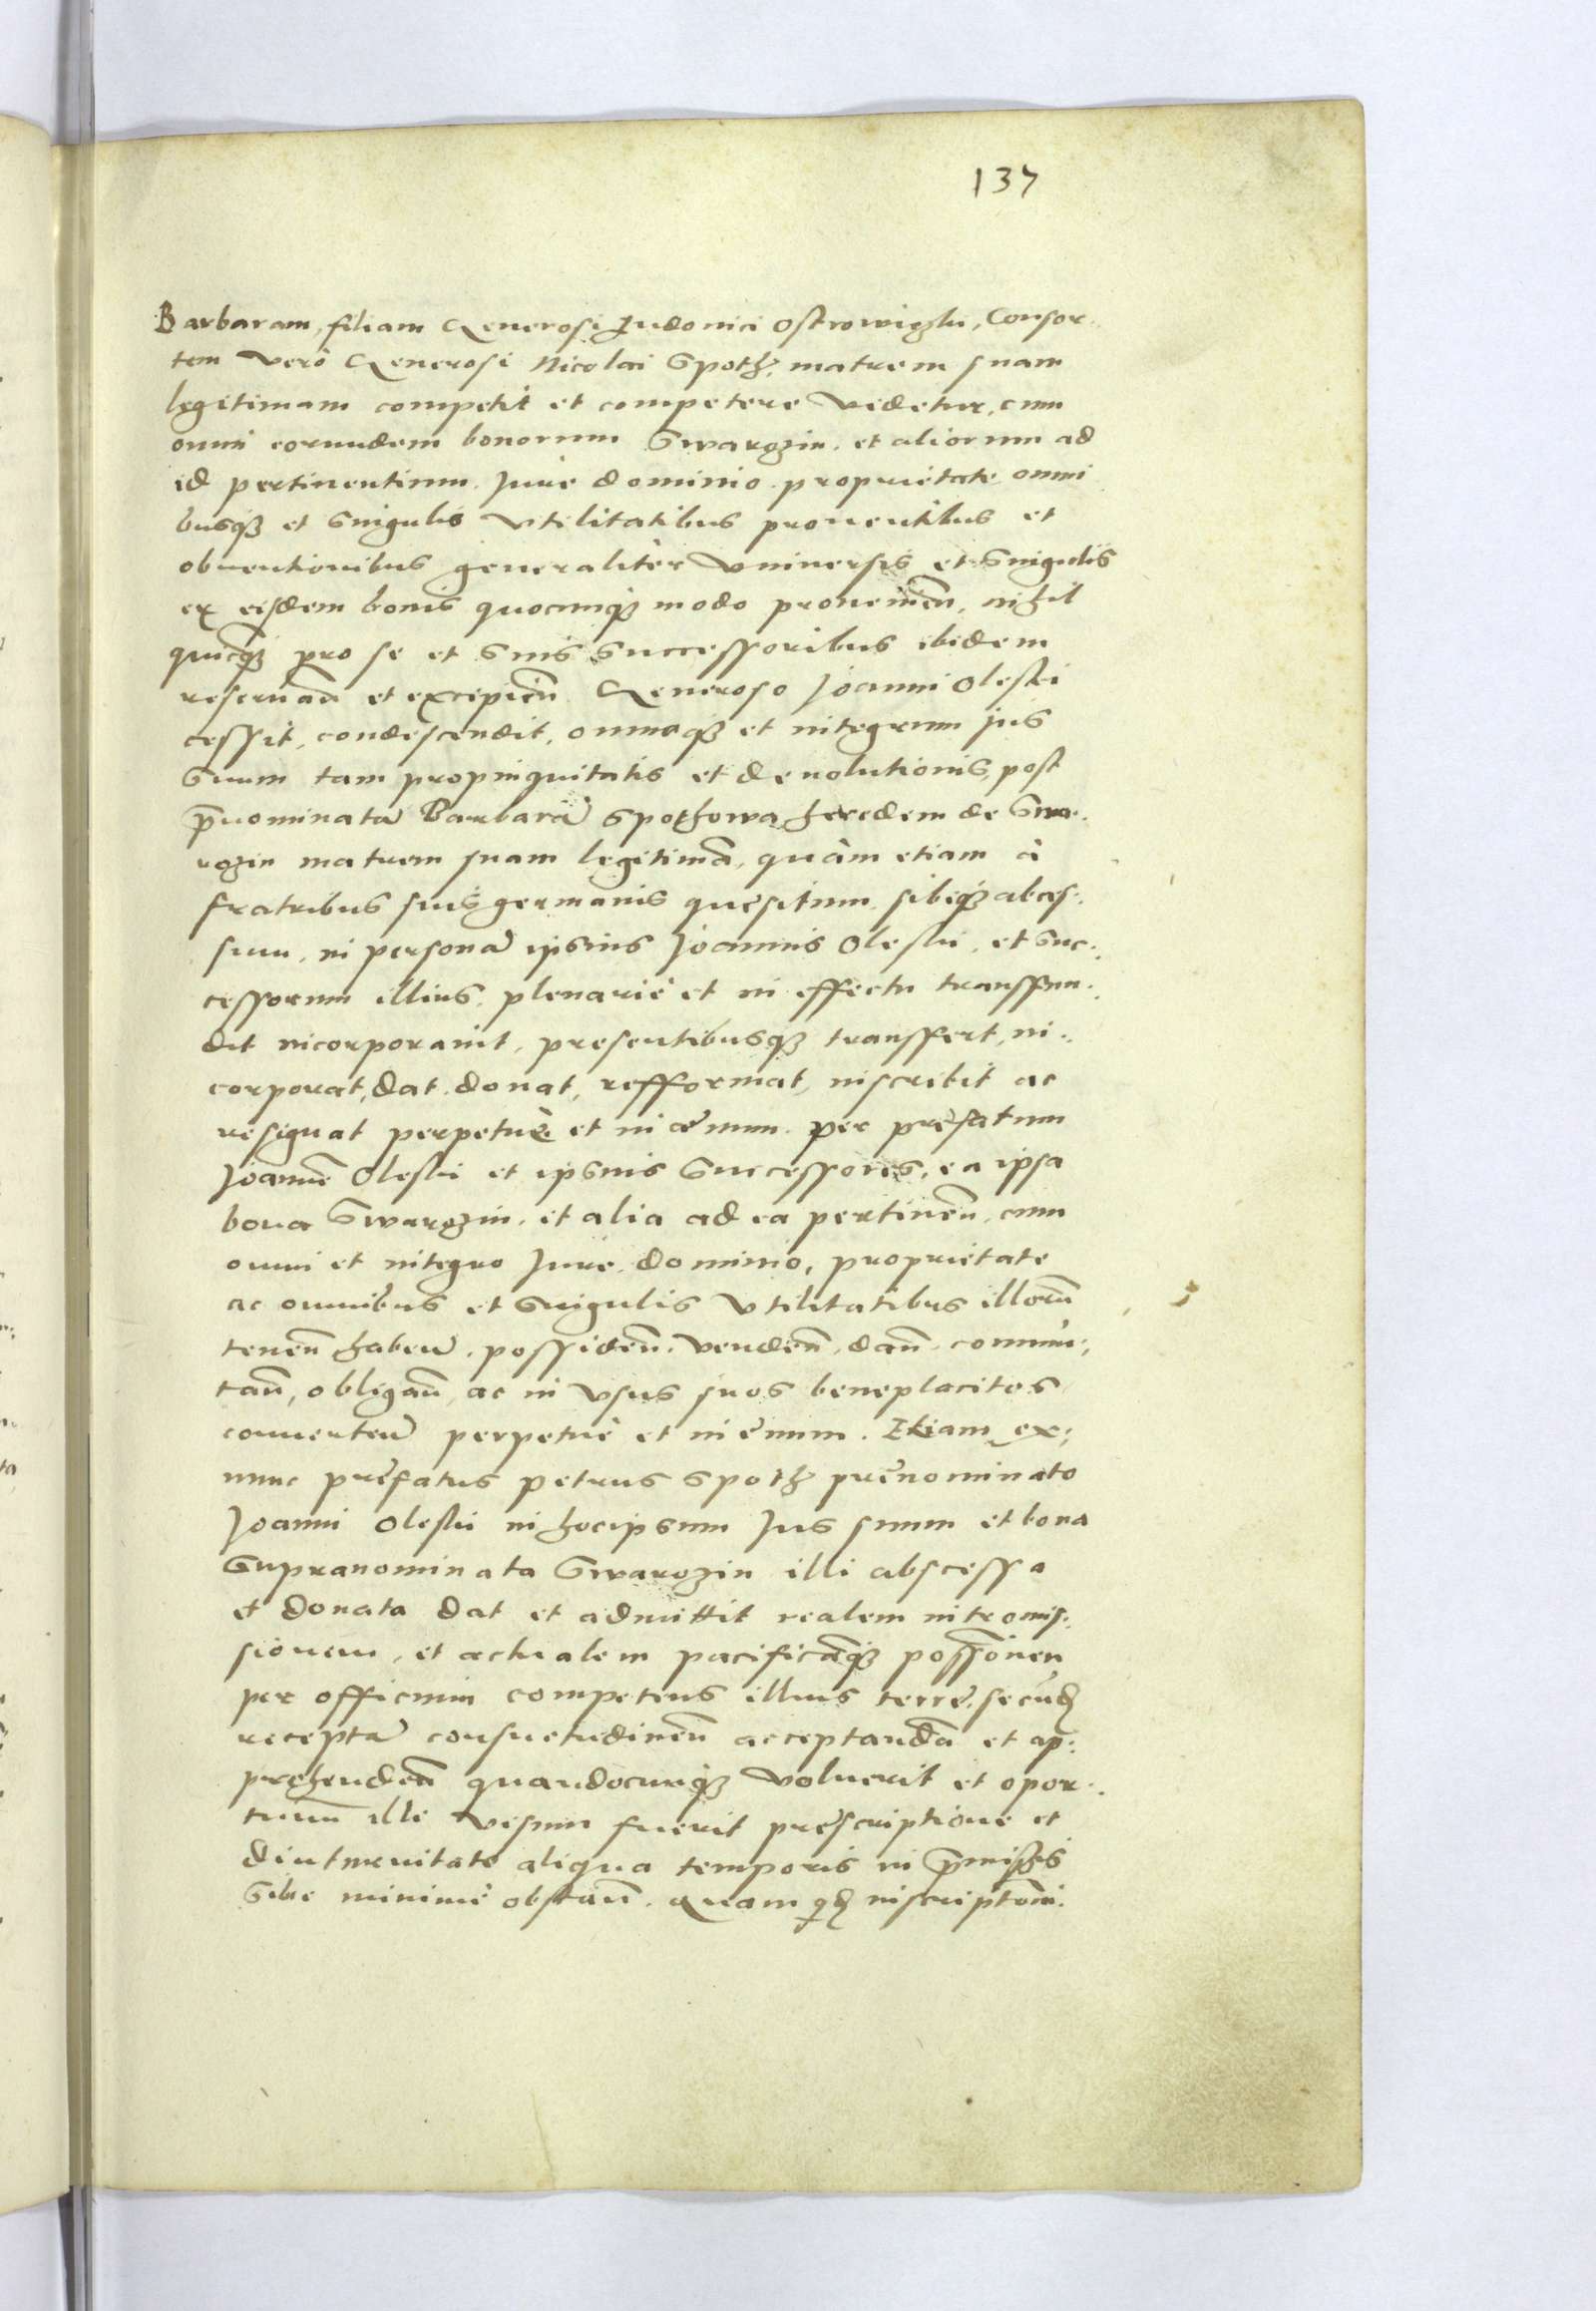 137
Barbaram, filiam Generosi Ludouici Ostrowiczki, Consor-
tem verò Generosi Nicolai Spoth, matrem suam
legitimam competit et competere videtur, cum
omni eorundem bonorum Swarozin et aliorum ad
id pertinentium Jure dominio proprietate omni
busq₃ et singulis vtilitatibus prouentibus et
obuentionibus generaliter vniuersis et singulis
ex eisdem bonis quocunq₃ modo prouenien̄, nihil
quicq̄₃ pro se et suis successoribus ibidem
reseruan̄ et excipien̄ Generoso Joanni Oleski
cessit, condescendit, omneq₃ et integrum jus
suum tam propinquitatis et deuolutionis, post
p̄nominatā Barbarā Spothowa heredem de Swa-
rozin matrem suam legitimā, quàm etiam à
fratribus suis germanis quesitum sibiq₃ abces-
sum, in personā ipsius Joannis Oleski, et suc-
cessorum illius plenariè et in effectu transfun-
dit incorporauit, presentibusq₃ transfert, in-
corporat, dat donat, refformat, inscribit ac
resignat perpetuè et in æuum per prefatum
Joannē Oleski et ipsius successores, ea ipsa
bona Swarozin, et alia ad ea pertinen̄, cum
omni et integro Jure dominio, proprietate
ac omnibus et singulis vtilitatibus illorū
tenen̄ haben̄, possiden̄, venden̄, dan̄, commu-
tan̄, obligan̄, ac in vsus suos beneplacitos
conuerten̄ perpetuè et in euum. Etiam ex-
nunc prefatus Petrus Spoth prenominato
Joanni Oleski in hocipsum Jus suum et bona
supranominata Swarozin illi abscessa
et donata dat et admittit realem intromis-
sionem, et actualem pacificāq₃ possionen
per officium competens illius terre, secund
receptā consuetudinem acceptandā et ap-
prehenden̄ quandocunq₃ voluerit et opor-
tunū illi visum fuerit prescriptione et
diuturnitate aliqua temporis in p̄missis
sibi minimè obstan̄. Quam qd inscription̄.